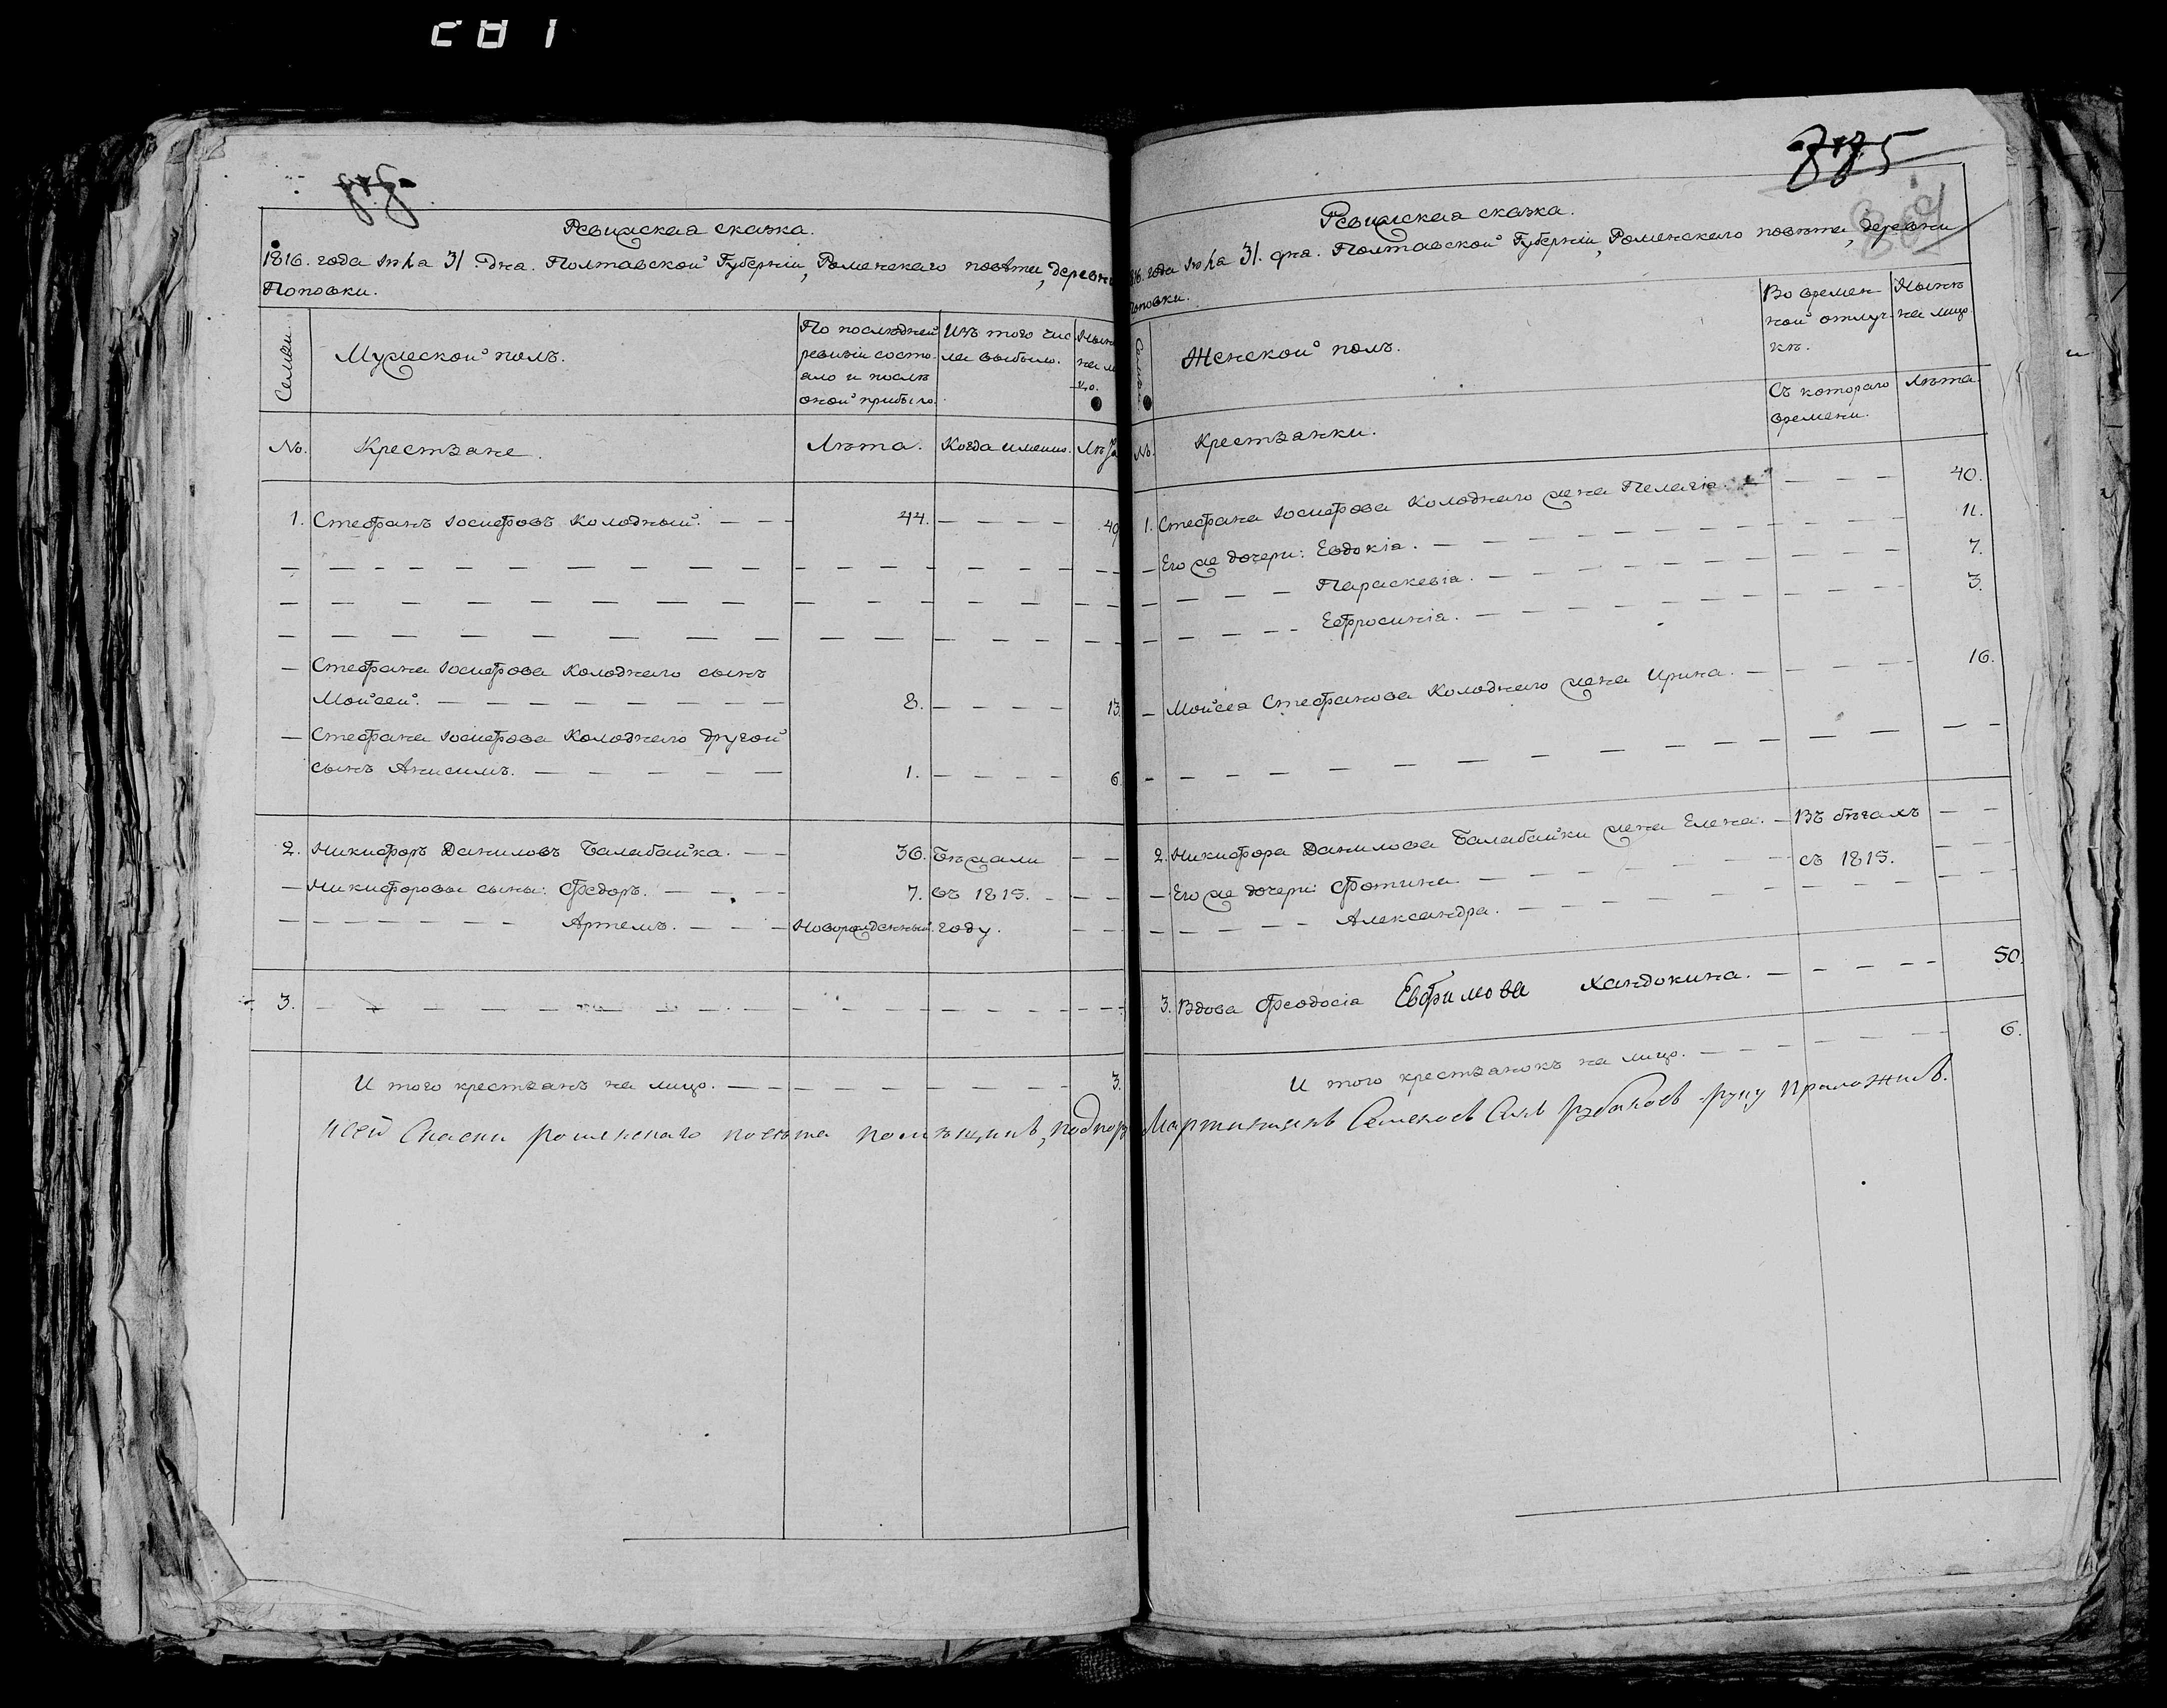 281
785
Ревижская сказка.
1816. года Іюля 31. дня. Полтавской Губерніи, Роменского повѣта, деревни
Поповки.
Семьи.
Мужеской полъ.
По послѣдней
ревизіи состо-
яло и послѣ
оной прибыло.
Изъ того чис
ла выбыло.
Нынѣ
на ли
цо.
№.
Крестьяне.
Лѣта.
Когда имянно.
Лѣта
1. Стефанъ Іосифовъ Колодный. 44. 49
Стефана Іосифова Колоднаго сынъ
Мойсей. 8. 13.
Стефана Іосифова Колоднаго другой
сынъ Анисимъ. 1. 6.
2. Никифоръ Даниловъ Балабайка. 36. Бѣжали
Никифоровы сыны: Федоръ. 7. въ 1815.
Артемъ. Новорожденный. году.
3.
И того крестьянъ на лицо. 3.
Ревижская сказка.
1816. года Іюля 31. дня. Полтавской Губерніи, Роменскаго повѣта, деревни
Поповки.
Семьи.
Женской полъ.
Во времен
ной отлуч-
кѣ.
Нынѣ
на лицо
Съ котораго
времени.
Лѣта.
№.
Крестьянки.
1. Стефана Іосифова Колоднаго жена Пелагія. 40.
Его же дочери: Евдокія. 11.
Параскевія. 7.
Ефросинія. 3.
Мойсея Стефанова Колоднаго жена Ирина. 16.
2. Никифора Данилова Балабайки жена Елена. Въ бѣгахъ
Его же дочери: Фотина съ 1815.
Александра.
3. Вдова Феодосіа Евфимова Хандокина. 50.
И того крестьянокъ на лицо. 6.
К сей Скаски роменскаго повѣта помѣщикъ, подпор Семеновъ Синъ руку Приложилъ.